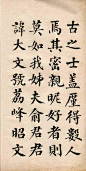 古之士蓋屢得數人
焉其密親昵好者則
莫如我姊夫俞君君
諱大文號荔峰昭文